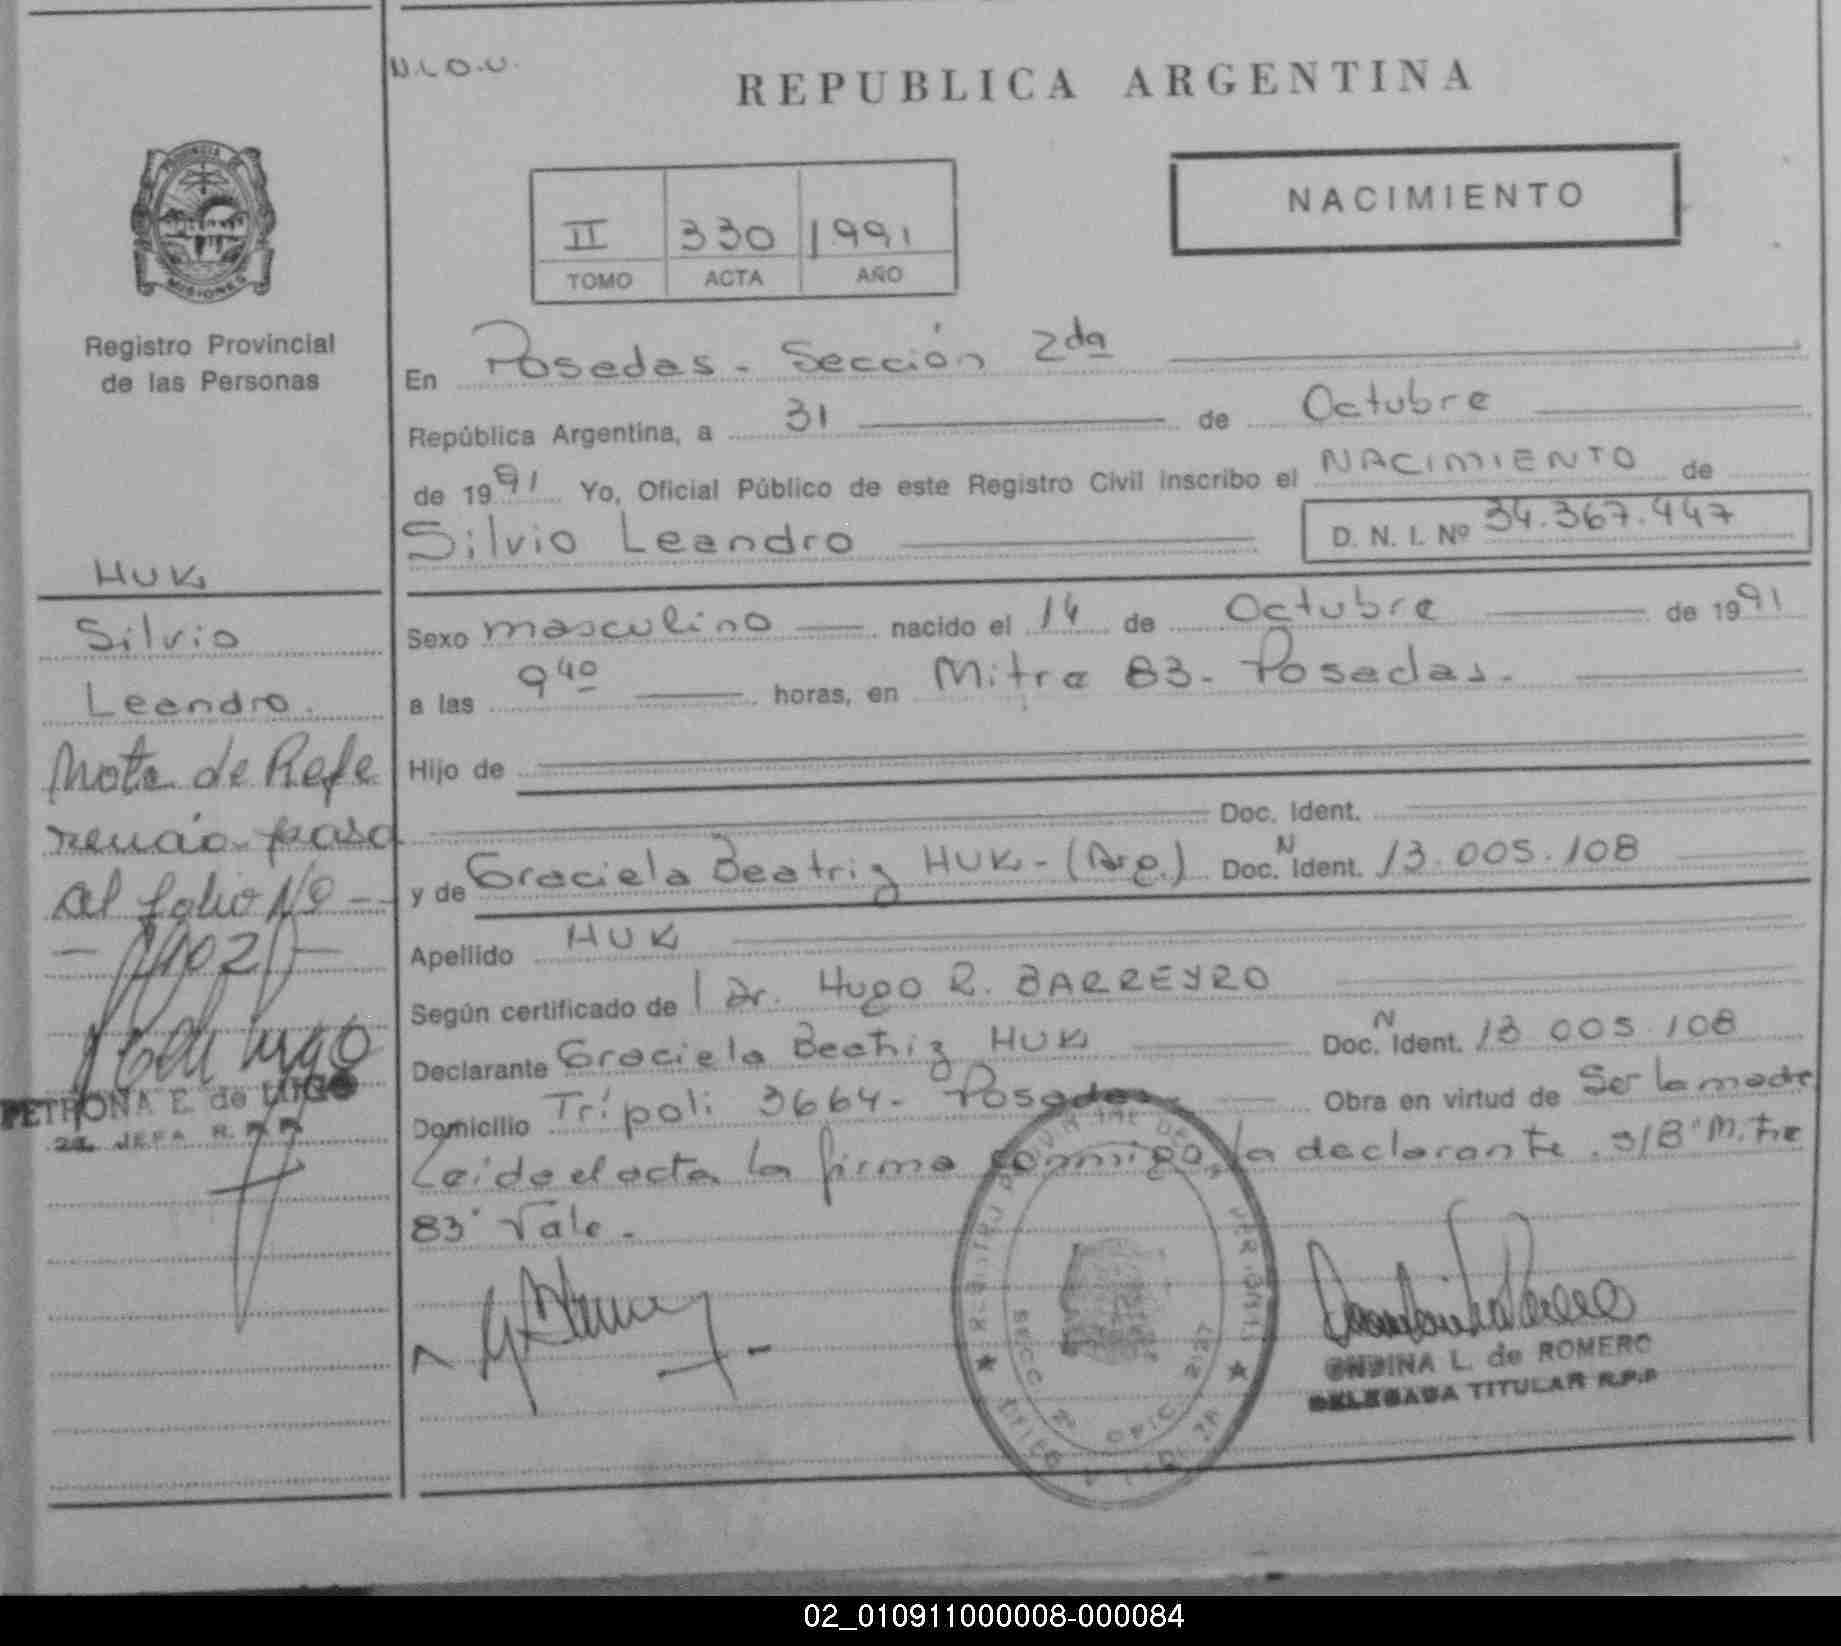 N.L.O.U.
REPUBLICA ARGENTINA
NACIMIENTO
II 330 1991
TOMO ACTA AÑO
PROVINCIA DE
MISIONES
Registro Provincial
de las Personas
En Posadas - Sección 2da
República Argentina, a 31 de Octubre
de 1991 Yo, Oficial Público de este Registro Civil inscribo el NACIMIENTO de
Silvio Leandro D. N. I. Nº 34.367.447
HUK
Silvio
Leandro.
Nota de Refe
rencia pasa
al folio Nº --
PETRONA E. de LUGO
2a. JEFA R.
Sexo masculino nacido el 14 de Octubre de 1991
a las 9 40 horas, en Mitre 83 - Posadas.
Hijo de
Doc. Ident.
y de Graciela Beatriz HUK - (Arg.) Doc. N Ident. 13.005.108
Apellido HUK
Según certificado de l Dr. Hugo R. BARREYRO
Declarante Graciela Beatriz HUK Doc. N Ident. 13 005.108
Domicilio Trípoli 3664 - Posadas Obra en virtud de Ser la madre
Leída el acta la firma conmigo, la declarante. s/B "Mitre
83" Vale.
SECC 2 OFIC 2127
ONDINA L. de ROMERO
DELEGADA TITULAR R.P.P
02_010911000008-000084